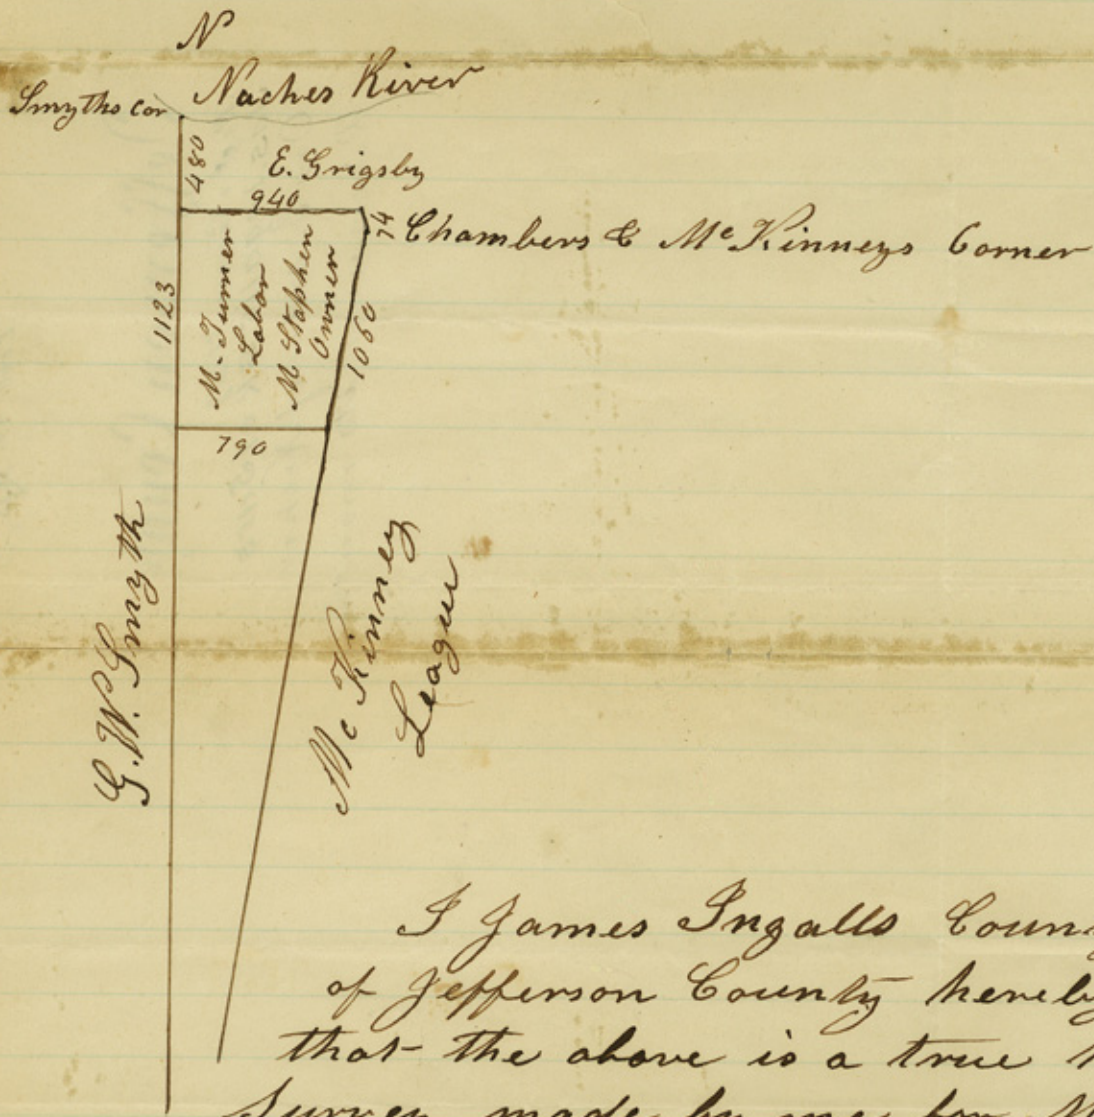 N
Naches River
Smyths cor
480
E. Grigsby
940
74
Chambers & McKinneys Corner
1123
M. Turner
Labor
M Stephen
Owner
1060
790
G. W. Smyth
McKinney
League
I James Ingalls
of Jefferson County
that the above is a true
Survey made by me for